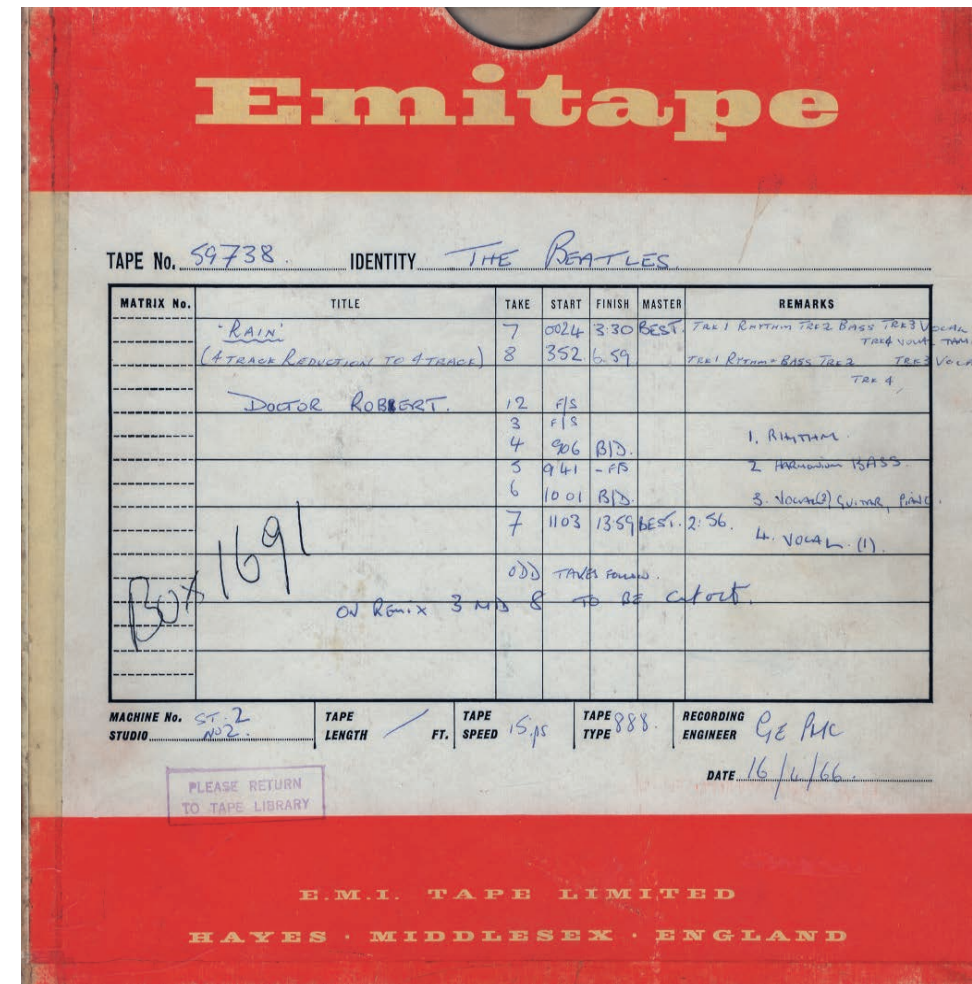 Emitape
TAPE No. 59738. IDENTITY THE BEATLES.
MATRIX No. TITLE TAKE START FINISH MASTER REMARKS
"RAIN" 7 0024 3:30 BEST. TRK 1 RHYTHM TRK 2 BASS TRK 3 VOCAL
TRK 4 VOCAL TAM
(4 TRACK REDUCTION TO 4 TRACK) 8 352 6.59 TRK 1 RYTHM + BASS TRK 2 TRK 3 VOCA
TRK 4
DOCTOR ROBBERT. 12 F/S
3 F/S
4 906 B/D. 1. RHYTHM.
5 941 - F/S 2 HARMONIUM BASS.
6 1001 B/D. 3. VOCAL(2) GUITAR, PIANO.
7 1103 13:59 BEST. 2:56.
4. VOCAL. (1).
ODD TAKES FOLLOW.
ON REMIX 3 MID 8 TO BE cut out.
Box 1691
MACHINE No. ST. 2 TAPE TAPE TAPE RECORDING
STUDIO NO2. LENGTH / FT. SPEED 15 ips TYPE 888. ENGINEER GE PMC
DATE 16/4/66.
PLEASE RETURN
TO TAPE LIBRARY
E.M.I. TAPE LIMITED
HAYES · MIDDLESEX · ENGLAND